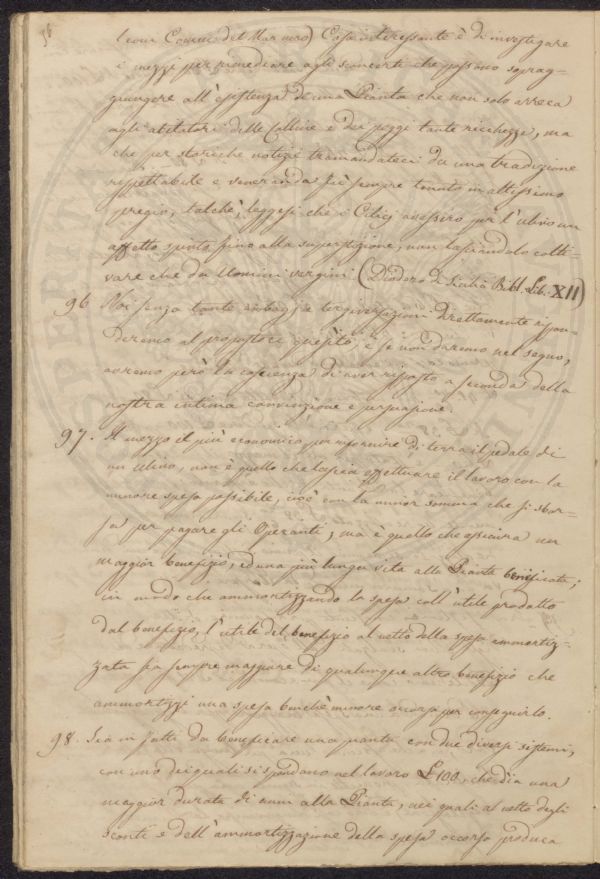 56
(come Comune del Marmoro) Cosa interessante è di investigare
i mezzi per rimediare agli sconcerti che possono soprag=
giungere all'esistenza di una Pianta che non solo arreca
agli abitatori delle Colline e dei poggi tante ricchezze, ma
che per storiche notizie tramandateci da una tradizione
rispettabile e veneranda fù sempre tenuta in altissimo
pregio, talchè, leggesi che i Cilicj avessero per l'ulivo un
affetto spinto fino alla superstizione, non lasciandolo colti=
vare che da Uomini vergini (Diodoro di Sicilia Bibl. Lib. XII)
96 Noi senza tante ambagi e tergiversazioni direttamente rispon=
deremo al propostoci quesito, e se non daremo nel segno,
avremo però la coscienza di aver risposto a seconda della
nostra intima convinzione e persuasione.
97. Il mezzo il più economico per rifornire di terra il pedale di
un ulivo, non è quello che lascia effettuare il lavoro con la
minore spesa possibile, cioè con la minor somma che si sbor=
sa per pagare gli Operanti, ma è quello che assicura un
maggior benefizio, ed una più lunga vita alla Pianta beneficata;
in modo che ammortizzando la spesa coll'utile prodotto
dal benefizio, l'utile del benefizio al netto della spesa ammortiz=
zata sia sempre maggiore di qualunque altro benefizio che
ammortizzi una spesa benchè minore occorsa per conseguirlo.
98. Sia in fatti da beneficare una pianta con due diversi sistemi,
con uno dei quali si spendano nel lavoro £ 100, che dia una
maggior durata di anni alla Pianta, nei quali al netto degli
sconti e dell'ammortizzazione della spesa occorsa produca